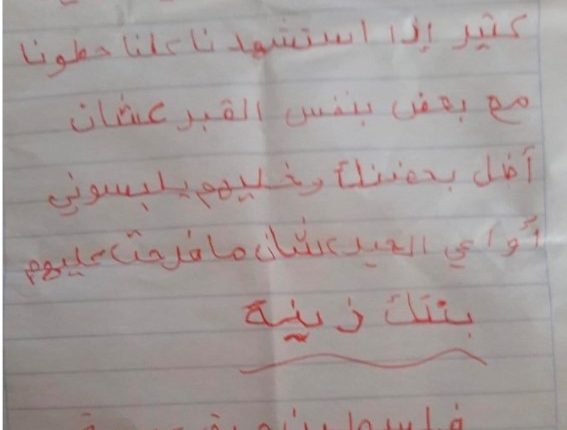 كتير إذا استشهدنا كلنا حطونا
مع بعض بنفس القبر عشان
أضل بحضنك وخليهم يلبسوني
أواعي العيد عشان ما فرحت عليهم
بنتك زينة